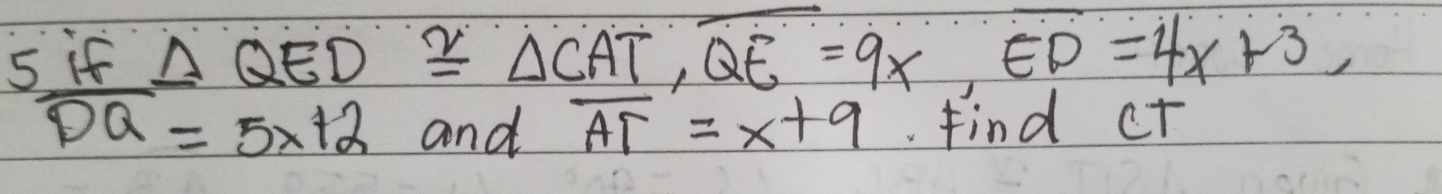 5 if Δ QED ≅ ΔCAT, QE = 9x, ED = 4x+3,
DQ = 5x+2 and AT = x+9. Find CT